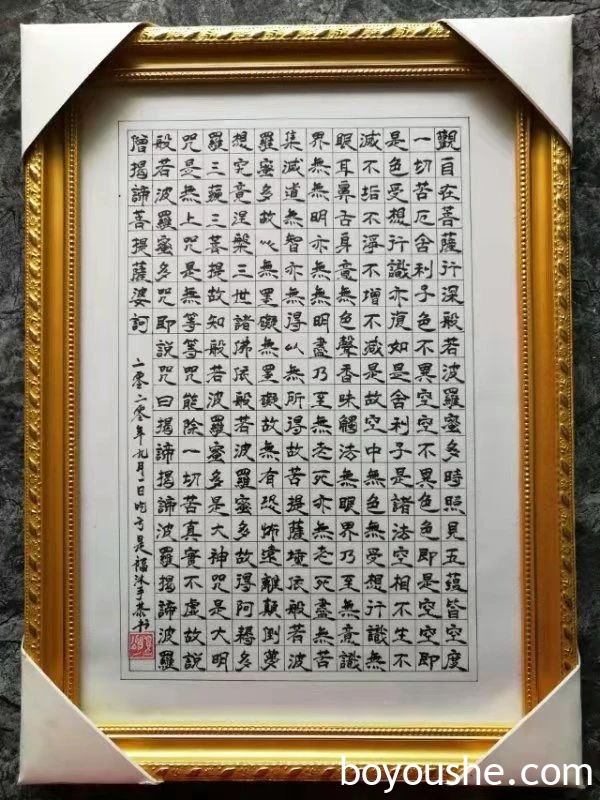 觀自在菩薩行深般若波羅蜜多時照見五蘊皆空度
一切苦厄舍利子色不異空空不異色色即是空空即
是色受想行識亦復如是舍利子是諸法空相不生不
滅不垢不淨不增不減是故空中無色無受想行識無
眼耳鼻舌身意無色聲香味觸法無眼界乃至無意識
界無無明亦無無明盡乃至無老死亦無老死盡無苦
集滅道無智亦無得以無所得故菩提薩埵依般若波
羅蜜多故心無罣礙無罣礙故無有恐怖遠離顛倒夢
想究竟涅槃三世諸佛依般若波羅蜜多故得阿耨多
羅三藐三菩提故知般若波羅蜜多是大神咒是大明
咒是無上咒是無等等咒能除一切苦真實不虛故說
般若波羅蜜多咒即說咒曰揭諦揭諦波羅揭諦波羅
僧揭諦菩提薩婆訶
二零二零年九月一日吃亏是福沐手恭抄
boyoushe.com